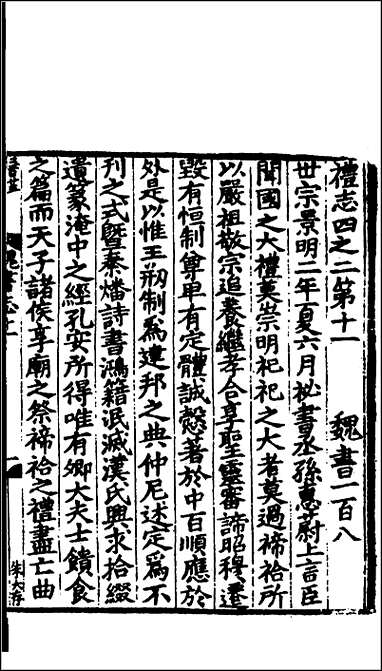 禮志四之二第十一　魏書一百八
世宗景明二年夏六月祕書丞孫惠蔚上言臣
聞國之大禮莫崇明祀祀之大者莫過禘祫所
以嚴祖敬宗追養繼孝合享聖靈審諦昭穆遷
毀有恒制尊卑有定體誠慤著於中百順應於
外是以惟王剏制為建邦之典仲尼述定為不
刊之式暨秦燔詩書鴻籍泯滅漢氏興求拾綴
遺篆淹中之經孔安所得唯有卿大夫士饋食
之篇而天子諸侯享廟之祭禘祫之禮盡亡曲
朱六存